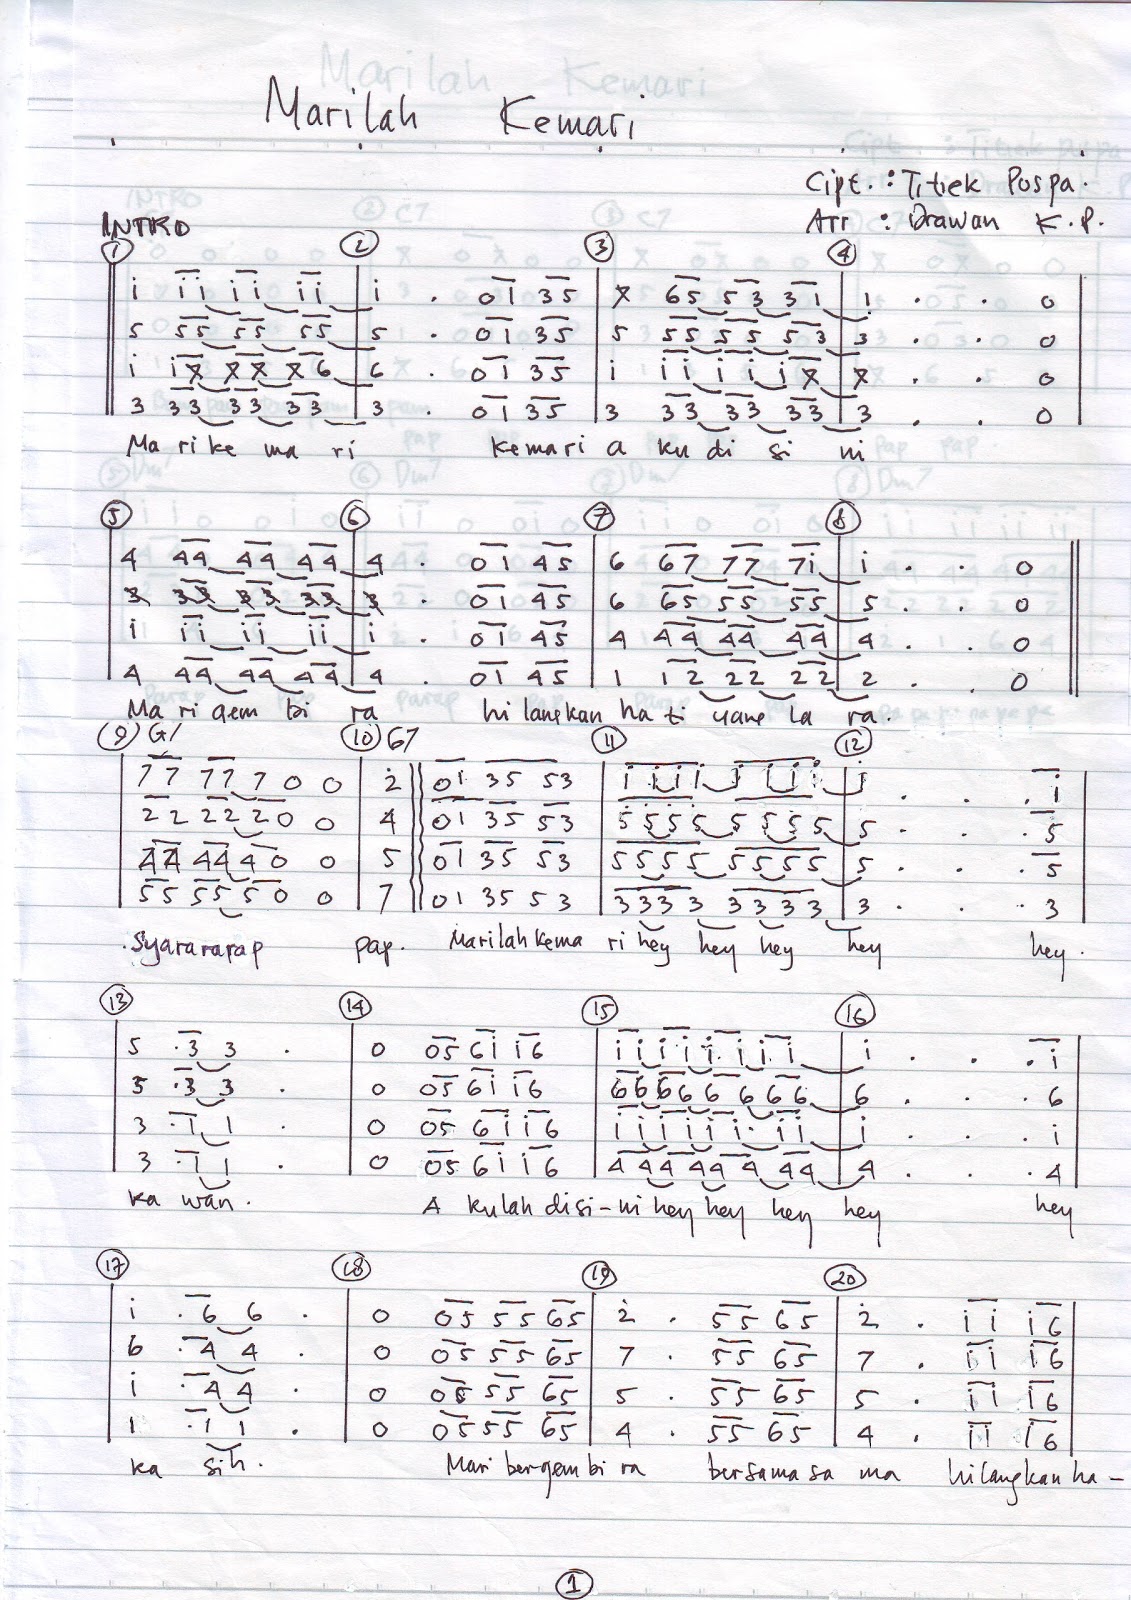 Marilah Kemari
Cipt. : Titiek Puspa.
Arr : Drawan K.P.
INTRO
1 2 3 4
i ii ii ii i . 01 35 7 65 53 31 1 . . 0
5 55 55 55 5 . 01 35 5 55 55 53 3 . . 0
i i7 77 76 6 . 01 35 i ii ii i7 7 . . 0
3 33 33 33 3 . 01 35 3 33 33 33 3 . . 0
Ma ri ke ma ri kemari a ku di si ni
5 6 7 8
4 44 44 44 4 . 01 45 6 67 77 7i i . . 0
3 33 33 33 3 . 01 45 6 65 55 55 5 . . 0
i ii ii ii i . 01 45 4 44 44 44 4 . . 0
4 44 44 44 4 . 01 45 1 12 22 22 2 . . 0
Ma ri gem bi ra hi langkan ha ti yang la ra.
9 G7 10 G7 11 12
77 77 7 0 0 2 01 35 53 iiii iiii i . . . i
22 22 2 0 0 4 01 35 53 5555 5555 5 . . . 5
44 44 4 0 0 5 01 35 53 5555 5555 5 . . . 5
55 55 5 0 0 7 01 35 53 3333 3333 3 . . . 3
Syarararap pap. Marilah kema ri hey hey hey hey hey.
13 14 15 16
5 .3 3 . 0 05 6i i6 ii ii ii ii i . . . i
5 .3 3 . 0 05 6i i6 66 66 66 66 6 . . . 6
3 .1 1 . 0 05 6i i6 ii ii ii ii i . . . i
3 .1 1 . 0 05 6i i6 44 44 44 44 4 . . . 4
ka wan. A kulah disi-ni hey hey hey hey hey
17 18 19 20
i .6 6 . 0 05 55 65 2 . 55 65 2 . ii i6
6 .4 4 . 0 05 55 65 7 . 55 65 7 . ii i6
i .4 4 . 0 05 55 65 5 . 55 65 5 . ii i6
1 .1 1 . 0 05 55 65 4 . 55 65 4 . ii i6
ka sih. Mari bergembi ra bersama sa ma hilangkan ha-
1